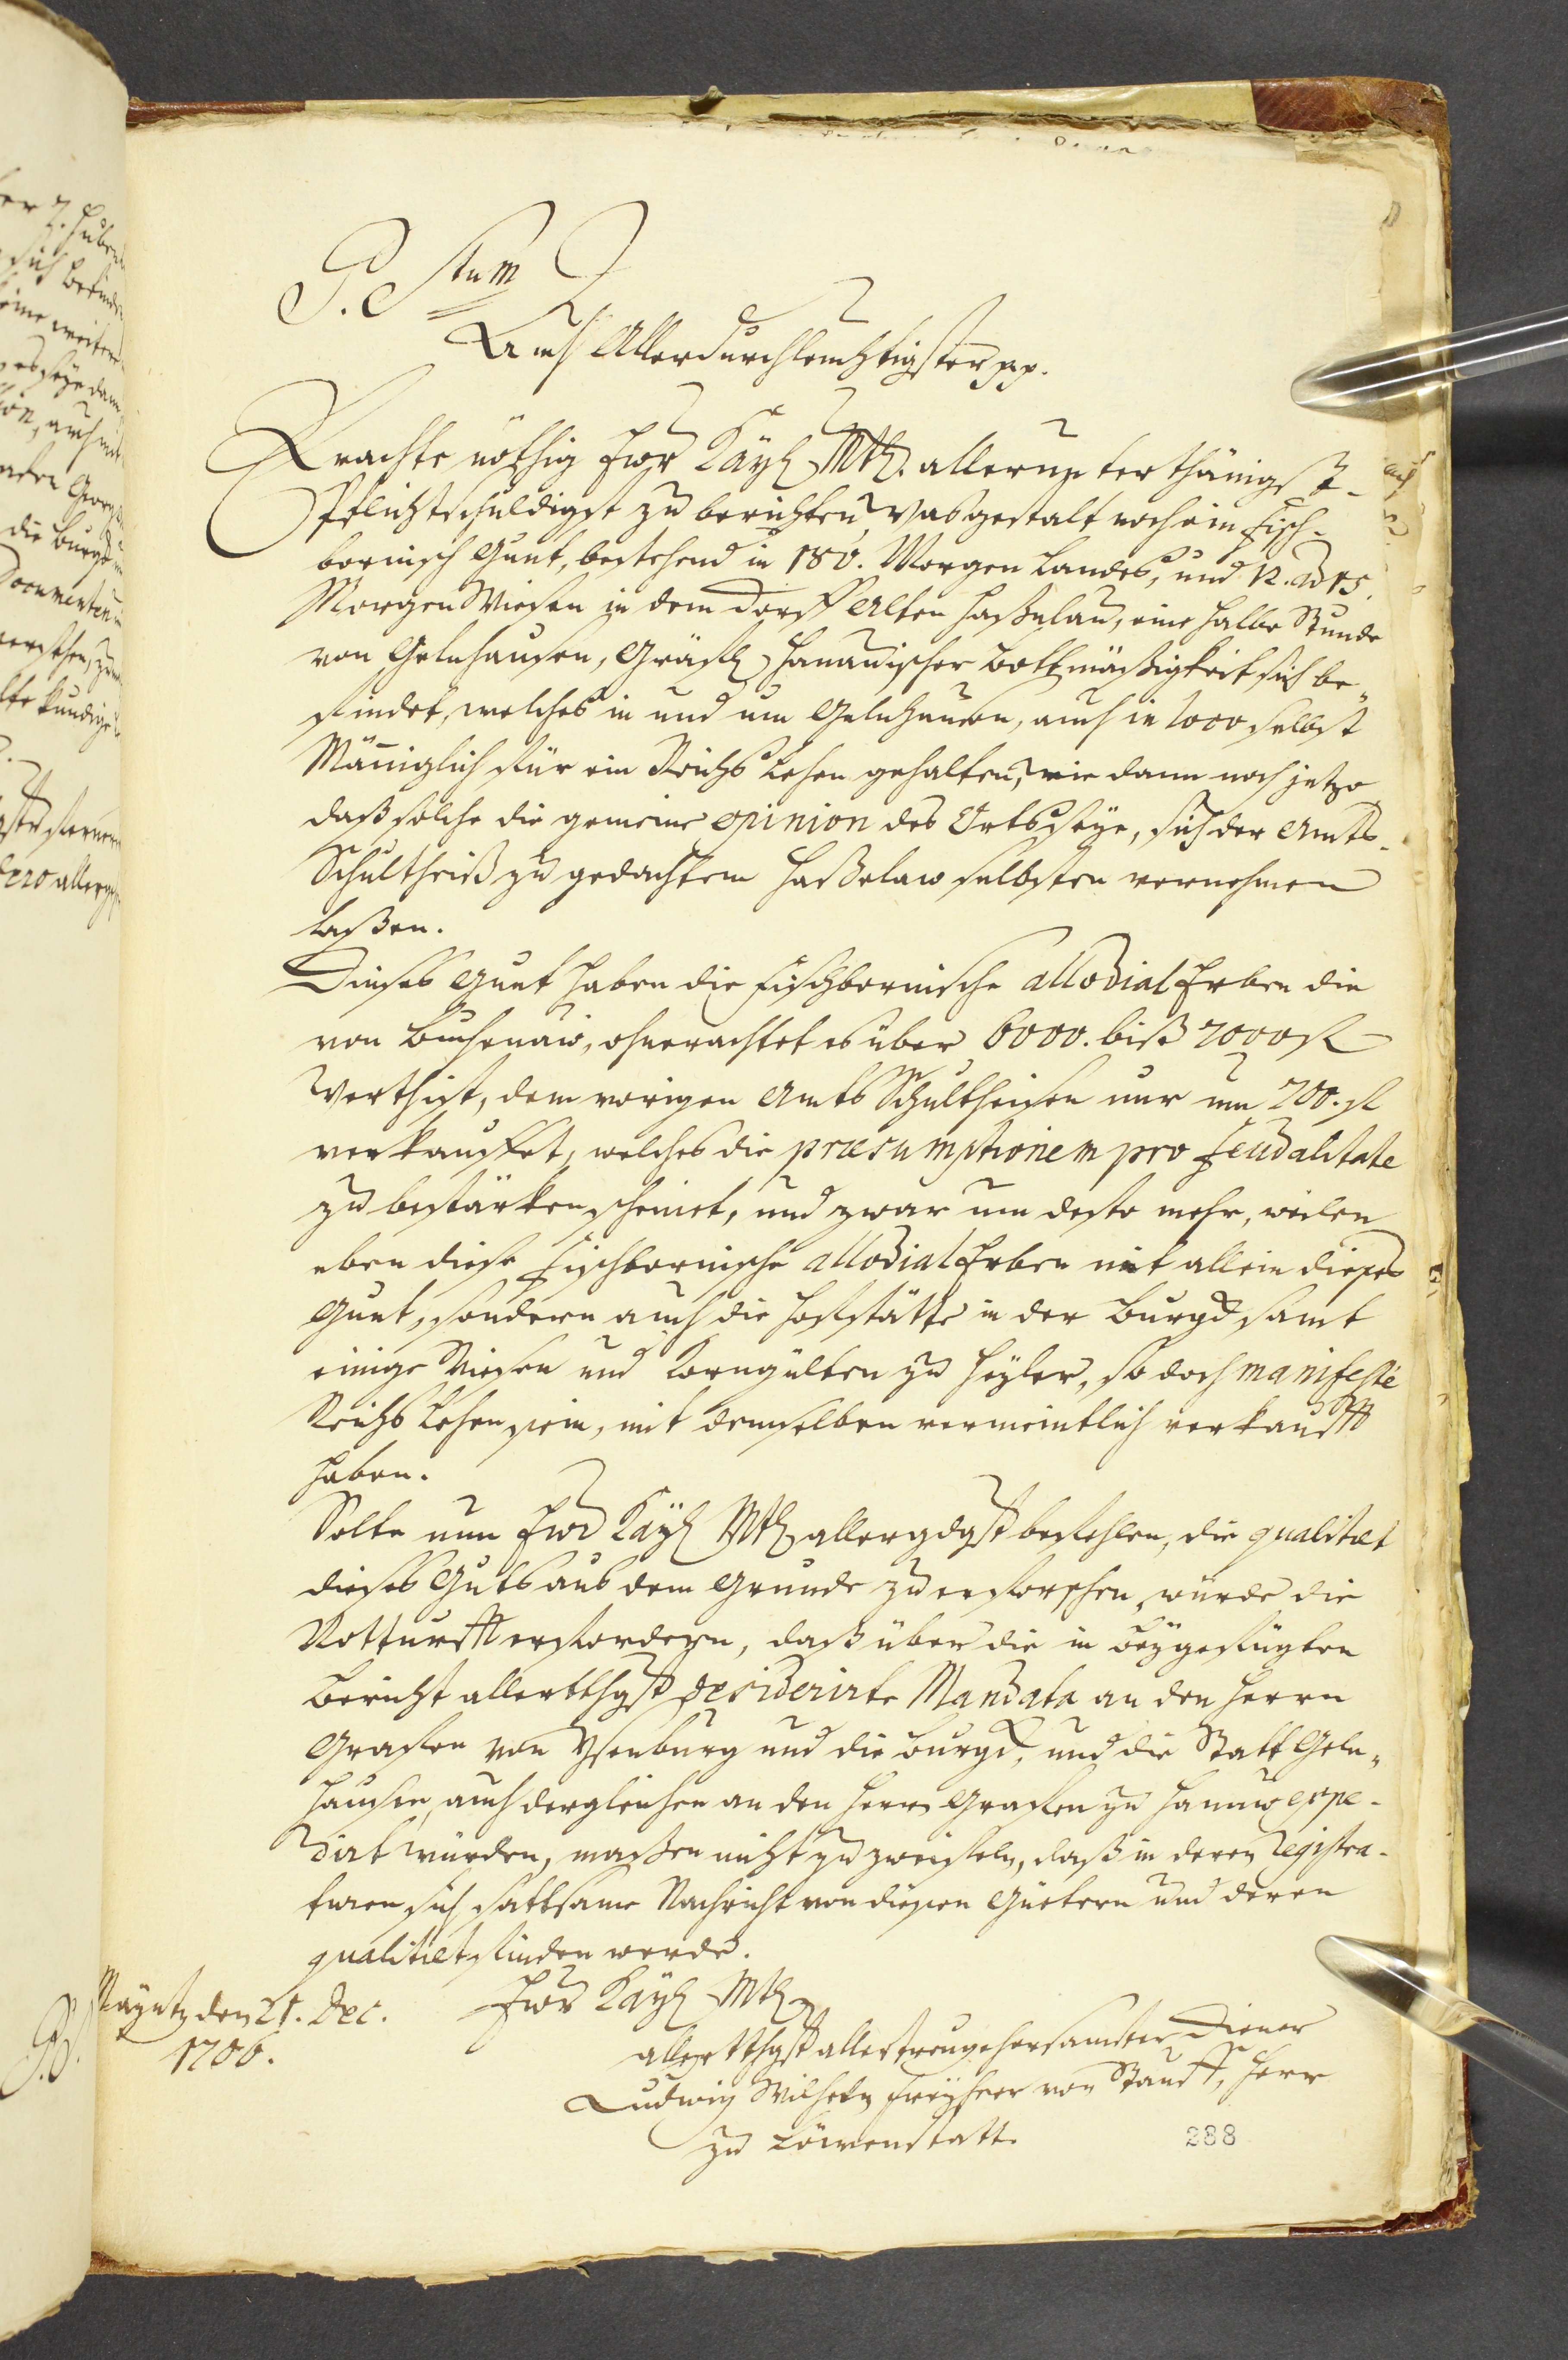 P. Stum
Auch Allerdurchleuchtigster pp.
Erachte nöthig Ewr Kayl Mtt. allerunterthänigst-
Pflichtschuldigst zu berichten, was gestalt noch ein Fisch-
bornisch Guet, bestehend in 180. Morgen Landes, und 12. ad 15.
Morgen Wiesen in dem Dorff Alten Haßelau, eine halbe Stunde
von Gelnhausen, Gräfl Hanauischer Bottmäßigkeit sich be-
findet, welches in und um Gelnhausen, auch in loco selbst
Männiglich für ein Reichs Lehen gehalten, wie dann noch jetzo
daß solche die gemeine opinion des Orts seye, sich der Ambts-
Schultheiß zu gedachtem Haßelaw selbsten vernehmen
laßen.
Dieses Guet haben die Fischbornische allodial Erben die
von Buchenaw, ohnerachtet es über 6000. biß 7000 fl
werth ist, dem vorigen Ambts Schultheisen nur um 700. fl
verkauffet, welches die præsumptionem pro feudalitate
zu bestärken scheinet, und zwar um desto mehr, weilen
eben diese Fischbornische allodial Erben nit allein dieses
Guet, sondern auch die Hoffstätte in der Burgk samt
einige Wiesen und Korngülten zu Heyler, so doch manifestè
Reichs Lehen sein, mit demselben vermeintlich verkaufft
haben.
Solte nun Ewr Kayl Mtt allergdgst befehlen, die qualitæt
dieses Guts aus dem Grunde zu erforschen, würde die
Notturfft erfordern, daß über die in beygefügten
Bericht allerutthgst desiderirte Mandata an den Herrn
Graffen von Ysenburg und die Burgk, und die Statt Geln-
hausen, auch dergleichen an den Herrn Graffen zu Hanaw expe-
dirt würden, maßen nicht zu zweifeln, daß in deren Registra-
turen sich sattsame Nachricht von diesen Güetern und deren
qualitæt finden werde.
Mayntz den 21. Dec.
1706.
Ewr Kayl Mtt
allerutthgst allertreugehorsamster Diener
Ludwig Wilhelm Freyherr von Staufft, Herr
zu Löwenstatt.
288